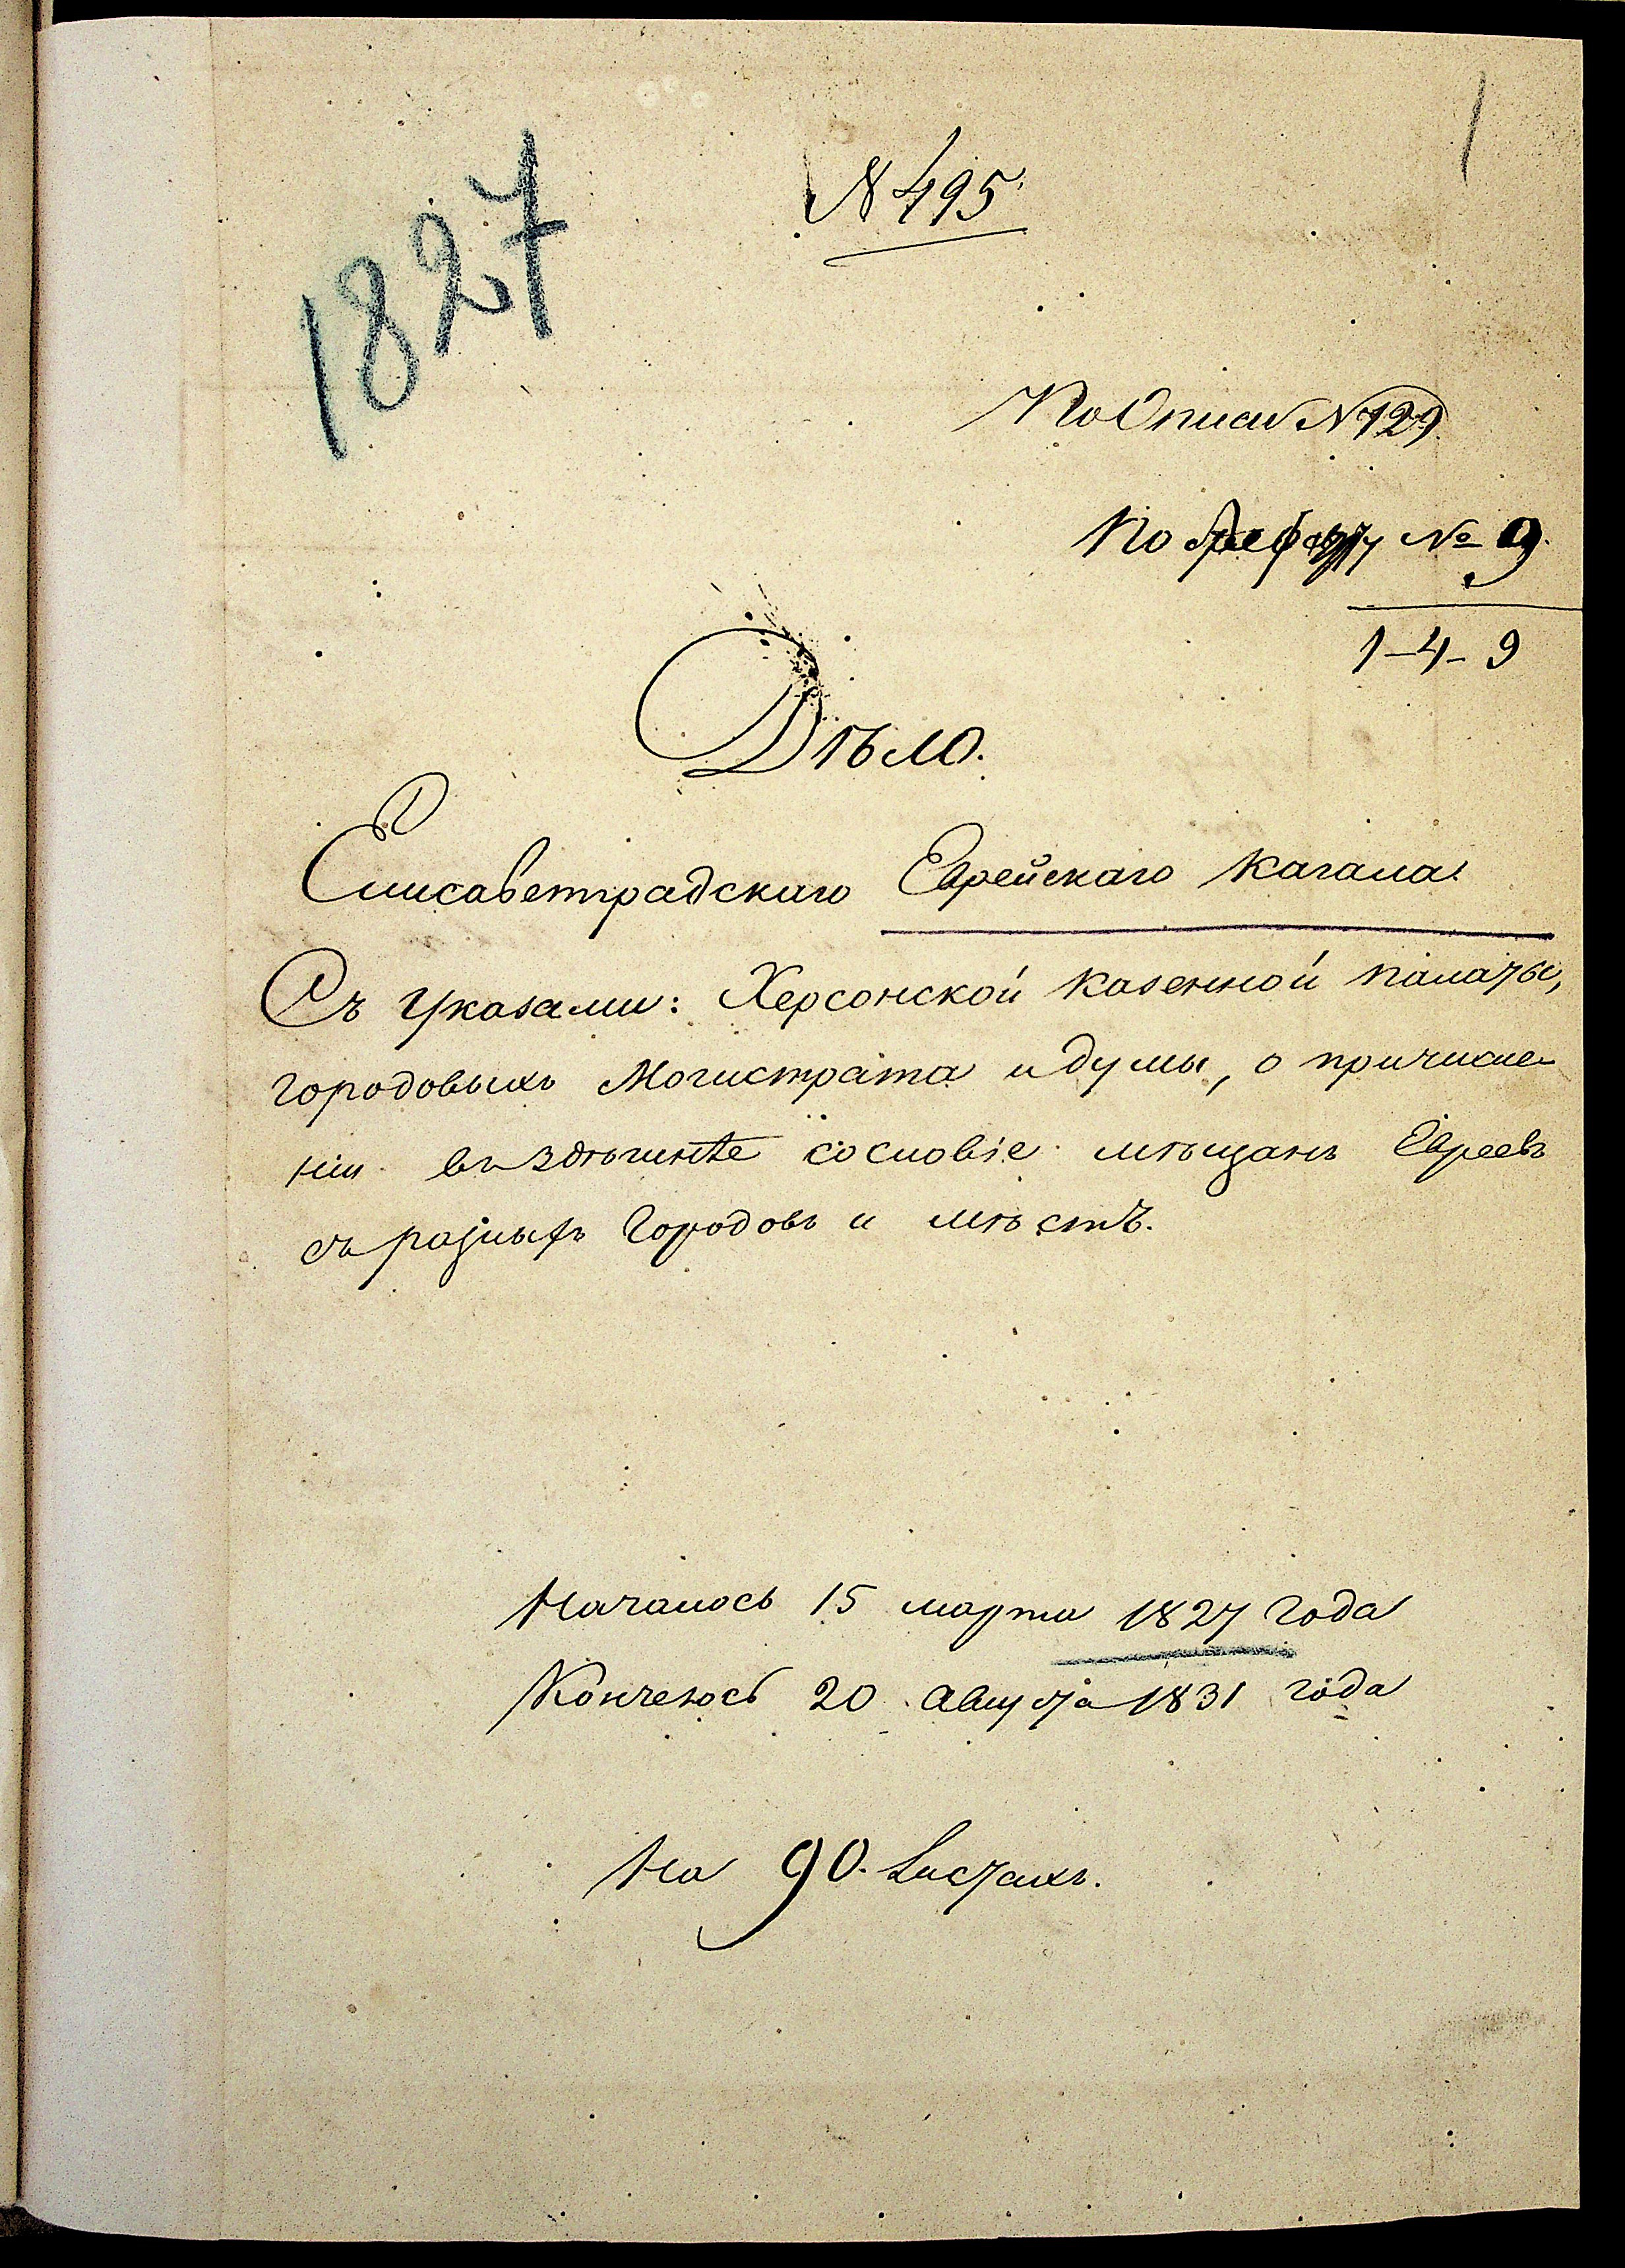 1
1827
N 495
По Описи N 129.
По № 9.
1-4-9
Дѣло.
Елисаветградскаго Еврейскаго Кагала.
Съ Указами: Херсонской Казенной палаты,
городовыхъ Магистрата и думы, о причисле-
ніи въ здѣшнѣе сословіе мѣщанъ Евреевъ
съ разныхъ Городовъ и мѣстъ.
Началось 15 марта 1827 года
Кончелось 20 Августа 1831 года
На 90. Листахъ.